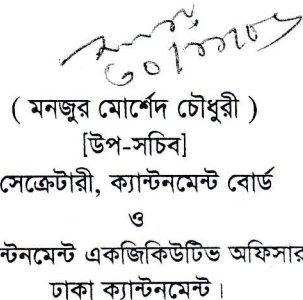 ( মনজুর মোর্শেদ চৌধুরী )
[উপ-সচিব]
সেক্রেটারী, ক্যান্টনমেন্ট বোর্ড
ও
ন্টনমেন্ট একজিকিউটিভ অফিসার
ঢাকা ক্যান্টনমেন্ট।